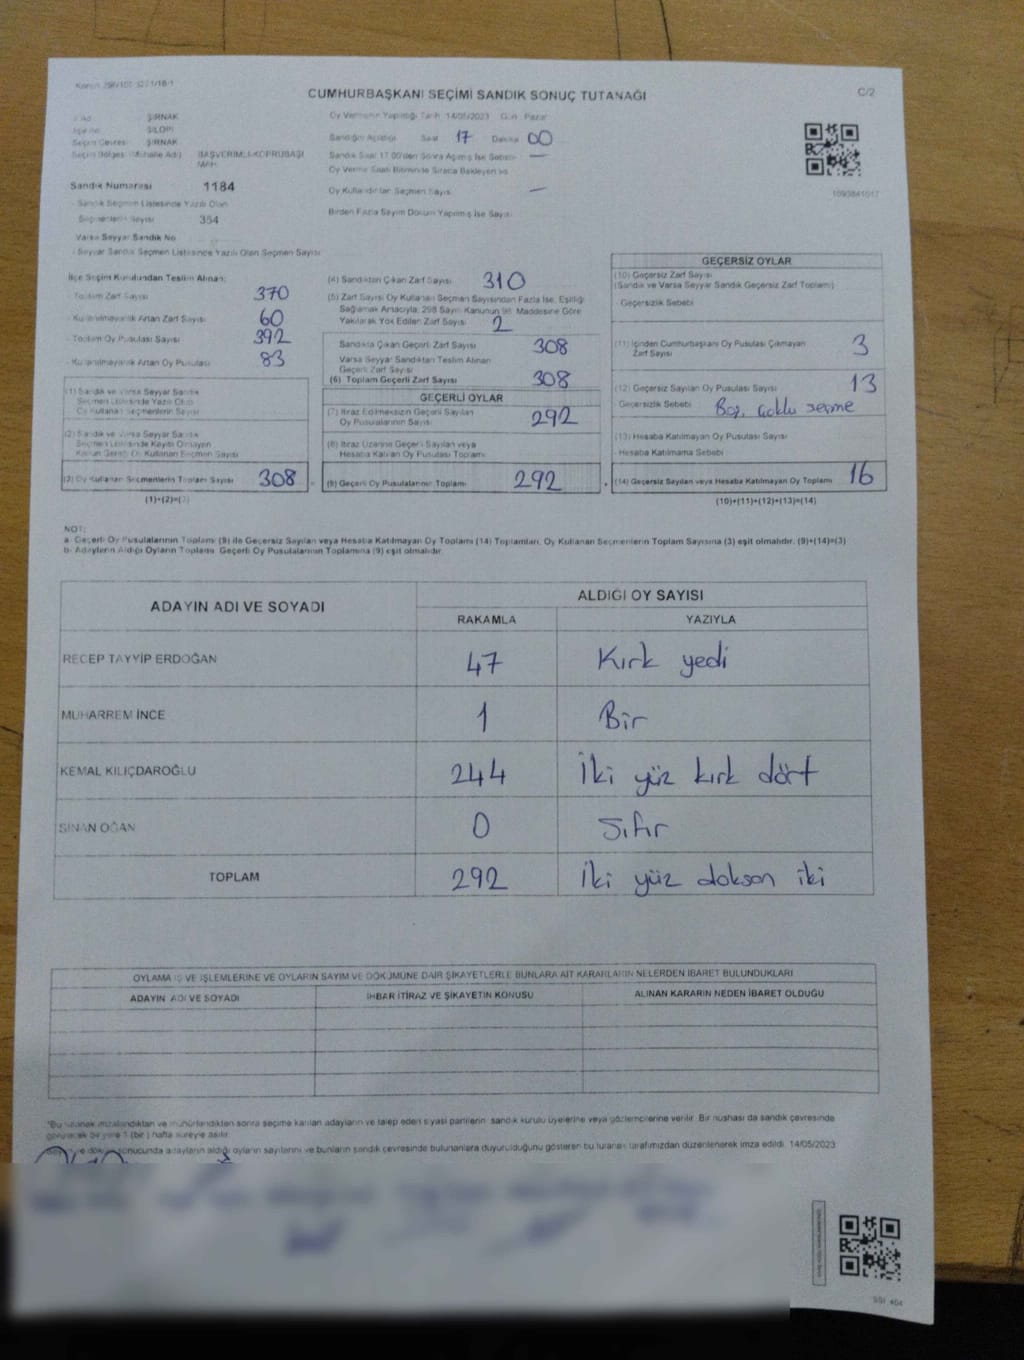 CUMHURBAŞKANI SEÇİMİ SANDIK SONUÇ TUTANAĞI
C/2
ŞIRNAK
SİLOPİ
Seçim Çevresi ŞIRNAK
BAŞVERİMLİ-KÖPRÜBAŞI
MAH.
Sandık Numarası 1184
- Sandık Seçmen Listesinde Yazılı Olan
Seçmenlerin Sayısı 354
Varsa Seyyar Sandık No
- Seyyar Sandık Seçmen Listesinde Yazılı Olan Seçmen Sayısı
Oy Vermenin Yapıldığı Tarih 14/05/2023 Gün Pazar
Sandığın Açıldığı Saat 17 Dakika 00
Sandık Saat 17.00'den Sonra Açılmış İse Sebebi —
Oy Verme Saati Bitiminde Sırada Bekleyen ve
Oy Kullandırılan Seçmen Sayısı —
Birden Fazla Sayım Döküm Yapılmış İse Sayısı
1093841017
İlçe Seçim Kurulundan Teslim Alınan:
- Toplam Zarf Sayısı 370
- Kullanılmayarak Artan Zarf Sayısı 60
- Toplam Oy Pusulası Sayısı 392
- Kullanılmayarak Artan Oy Pusulası 83
(1) Sandık ve Varsa Seyyar Sandık
Seçmen Listesinde Yazılı Olup
Oy Kullanan Seçmenlerin Sayısı
(2) Sandık ve Varsa Seyyar Sandık
Seçmen Listesinde Kaydı Olmayan
Kanun Gereği Oy Kullanan Seçmen Sayısı
(3) Oy Kullanan Seçmenlerin Toplam Sayısı 308
(1)+(2)=(3)
(4) Sandıktan Çıkan Zarf Sayısı 310
(5) Zarf Sayısı Oy Kullanan Seçmen Sayısından Fazla İse, Eşitliği
Sağlamak Amacıyla, 298 Sayılı Kanunun 98. Maddesine Göre
Yakılarak Yok Edilen Zarf Sayısı 2
Sandıkta Çıkan Geçerli Zarf Sayısı 308
Varsa Seyyar Sandıktan Teslim Alınan
Geçerli Zarf Sayısı
(6) Toplam Geçerli Zarf Sayısı 308
GEÇERLİ OYLAR
(7) İtiraz Edilmeksizin Geçerli Sayılan
Oy Pusulalarının Sayısı 292
(8) İtiraz Üzerine Geçerli Sayılan veya
Hesaba Katılan Oy Pusulası Toplamı
(9) Geçerli Oy Pusulalarının Toplamı 292
GEÇERSİZ OYLAR
(10) Geçersiz Zarf Sayısı
(Sandık ve Varsa Seyyar Sandık Geçersiz Zarf Toplamı)
- Geçersizlik Sebebi
(11) İçinden Cumhurbaşkanı Oy Pusulası Çıkmayan
Zarf Sayısı 3
(12) Geçersiz Sayılan Oy Pusulası Sayısı 13
Geçersizlik Sebebi Boş, çoklu seçme
(13) Hesaba Katılmayan Oy Pusulası Sayısı
- Hesaba Katılmama Sebebi
(14) Geçersiz Sayılan veya Hesaba Katılmayan Oy Toplamı 16
(10)+(11)+(12)+(13)=(14)
NOT:
a- Geçerli Oy Pusulalarının Toplamı (9) ile Geçersiz Sayılan veya Hesaba Katılmayan Oy Toplamı (14) Toplamları, Oy Kullanan Seçmenlerin Toplam Sayısına (3) eşit olmalıdır. (9)+(14)=(3)
b- Adayların Aldığı Oyların Toplamı, Geçerli Oy Pusulalarının Toplamına (9) eşit olmalıdır.
ADAYIN ADI VE SOYADI
ALDIĞI OY SAYISI
RAKAMLA YAZIYLA
RECEP TAYYİP ERDOĞAN 47 Kırk yedi
MUHARREM İNCE 1 Bir
KEMAL KILIÇDAROĞLU 244 İki yüz kırk dört
SİNAN OĞAN 0 Sıfır
TOPLAM 292 İki yüz doksan iki
OYLAMA İŞ VE İŞLEMLERİNE VE OYLARIN SAYIM VE DÖKÜMÜNE DAİR ŞİKAYETLERLE BUNLARA AİT KARARLARIN NELERDEN İBARET BULUNDUKLARI
ADAYIN ADI VE SOYADI İHBAR İTİRAZ VE ŞİKAYETİN KONUSU ALINAN KARARIN NEDEN İBARET OLDUĞU
*Bu tutanak imzalandıktan ve mühürlendikten sonra seçime katılan adayların ve talep eden siyasi partilerin sandık kurulu üyelerine veya gözlemcilerine verilir. Bir nüshası da sandık çevresinde
görülecek bir yere 1 (bir) hafta süreyle asılır.
döküm sonucunda adayların aldığı oyların sayılarını ve bunların sandık çevresinde bulunanlara duyurulduğunu gösteren bu tutanak tarafımızdan düzenlenerek imza edildi. 14/05/2023